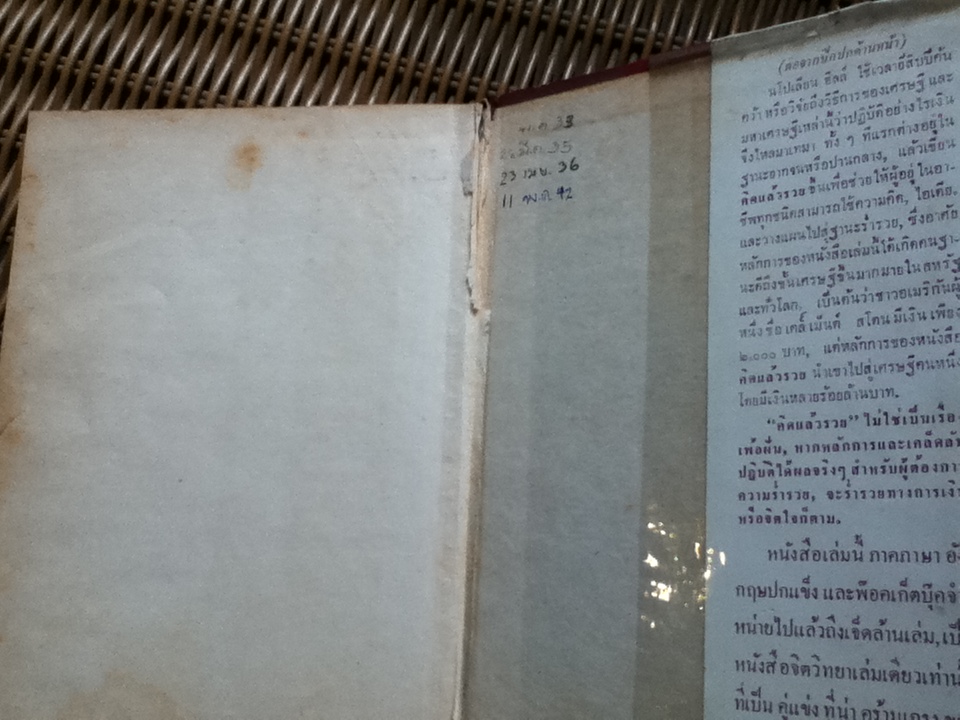 33
35
23 เมษ. 36
11 พ.ค. 42
(ต่อจากปีกปกด้านหน้า)
นโปเลียน ฮิลล์ ใช้เวลายี่สิบปีค้น
คว้า หรือวิจัยถึงวิธีการของเศรษฐี และ
มหาเศรษฐีเหล่านี้ว่าปฏิบัติอย่างไรเงิน
จึงไหลมาเทมา ทั้ง ๆ ที่แรกต่างอยู่ใน
ฐานะยากจนหรือปานกลาง, แล้วเขียน
คิดแล้วรวย ขึ้นเพื่อช่วยให้ผู้อยู่ในอา-
ชีพทุกชนิดสามารถใช้ความคิด, ไอเดีย,
และวางแผนไปสู่ฐานะร่ำรวย, ซึ่งอาศัย
หลักการของหนังสือเล่มนี้ได้เกิดคนฐา-
นะดีถึงขั้นเศรษฐีขึ้นมากมายในสหรัฐ
และทั่วโลก, เป็นต้นว่าชาวอเมริกันผู้
หนึ่งชื่อ เคล็เม็นต์ สโตน มีเงินเพียง
๒,๐๐๐ บาท, แต่หลักการของหนังสือ
คิดแล้วรวย นำเขาไปสู่เศรษฐีคนหนึ่ง
โดยมีเงินหลายร้อยล้านบาท.
“คิดแล้วรวย” ไม่ใช่เป็นเรื่อง
เพ้อฝัน, หากหลักการและเคล็ดลับ
ปฏิบัติได้ผลจริงๆ สำหรับผู้ต้องการ
ความร่ำรวย, จะร่ำรวยทางการเงิน
หรือจิตใจก็ตาม.
หนังสือเล่มนี้ ภาคภาษา อัง
กฤษปกแข็ง และพ๊อคเก็ตบุ๊คจำ
หน่ายไปแล้วถึงเจ็ดล้านเล่ม, เป็
หนังสือจิตวิทยาเล่มเดียวเท่านั้
ที่เป็น คู่แข่ง ที่น่า